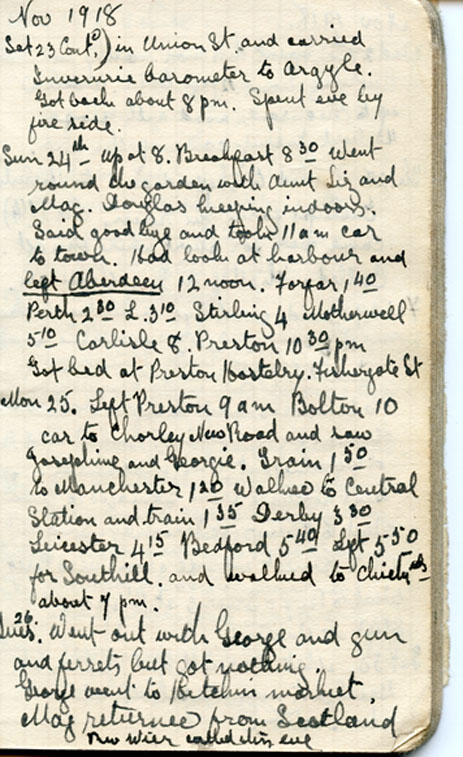 Nov 1918
Sat 23 Contd) in Union St. and carried
Inverurie barometer to Argyle.
Got back about 8 pm. Spent eve by
fire side.
Sun 24th up at 8. Breakfast 8 30 Went
round the garden with Aunt Liz and
Mag. Douglas keeping indoors.
Said goodbye and took 11 am car
to town. Had look at harbour and
left Aberdeen 12 noon. Forfar 1 40
Perth 2 30 L. 3 10 Stirling 4 Motherwell
5 10 Carlisle 8. Preston 10 30 pm
Got bed at Preston Hostelry. Fishergate St
Mon 25. Left Preston 9 am Bolton 10
car to Chorley New Road and saw
Josephine and Georgie. Train 1 50
to Manchester 1 20 Walked to Central
Station and train 1 35 Derby 3 30
Leicester 4 15 Bedford 5 40 Left 5 50
for Southill. and walked to
about 7 pm.
Tues. 26 Went out with George and gun
and ferrets but got nothing.
George went to Hitchin market.
Mag returned from Scotland
called this eve